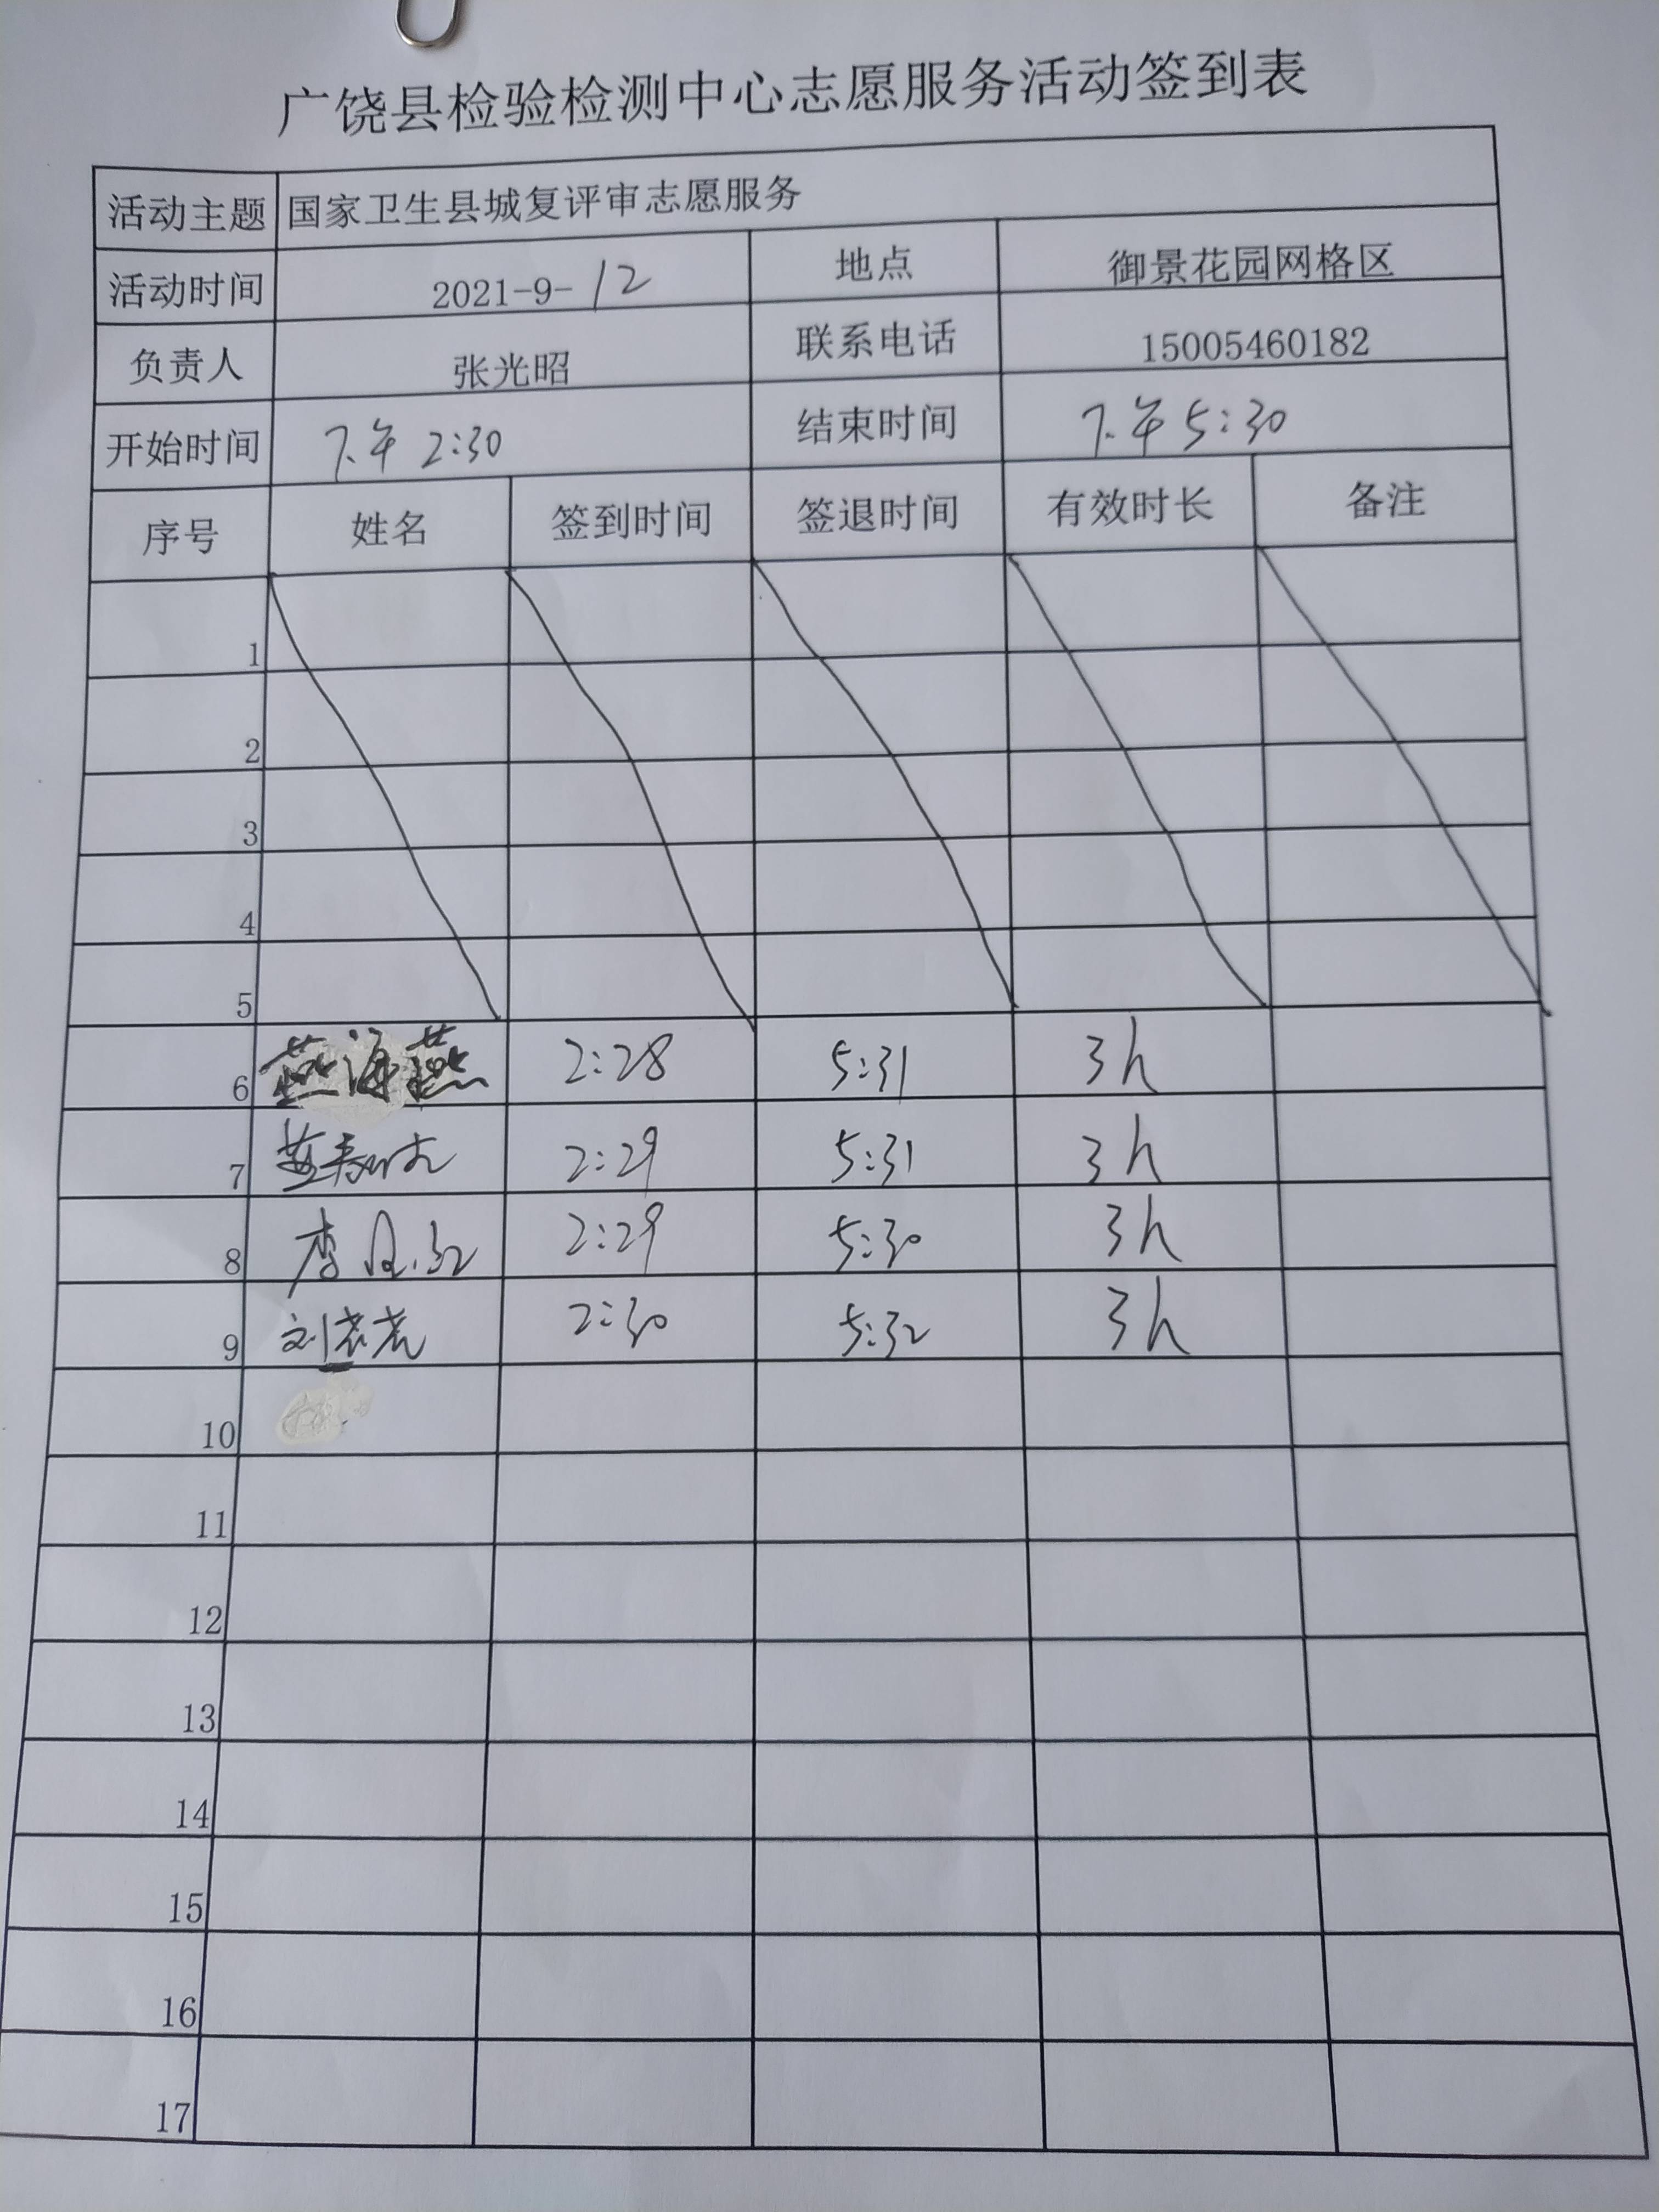 广饶县检验检测中心志愿服务活动签到表
活动主题 国家卫生县城复评审志愿服务
活动时间 2021-9-12 地点 御景花园网格区
负责人 张光昭 联系电话 15005460182
开始时间 下午 2:30 结束时间 下午 5:30
序号 姓名 签到时间 签退时间 有效时长 备注
1
2
3
4
5
6 燕海燕 2:28 5:31 3h
7 2:29 5:31 3h
8 李 2:29 5:30 3h
9 刘 2:30 5:32 3h
10
11
12
13
14
15
16
17